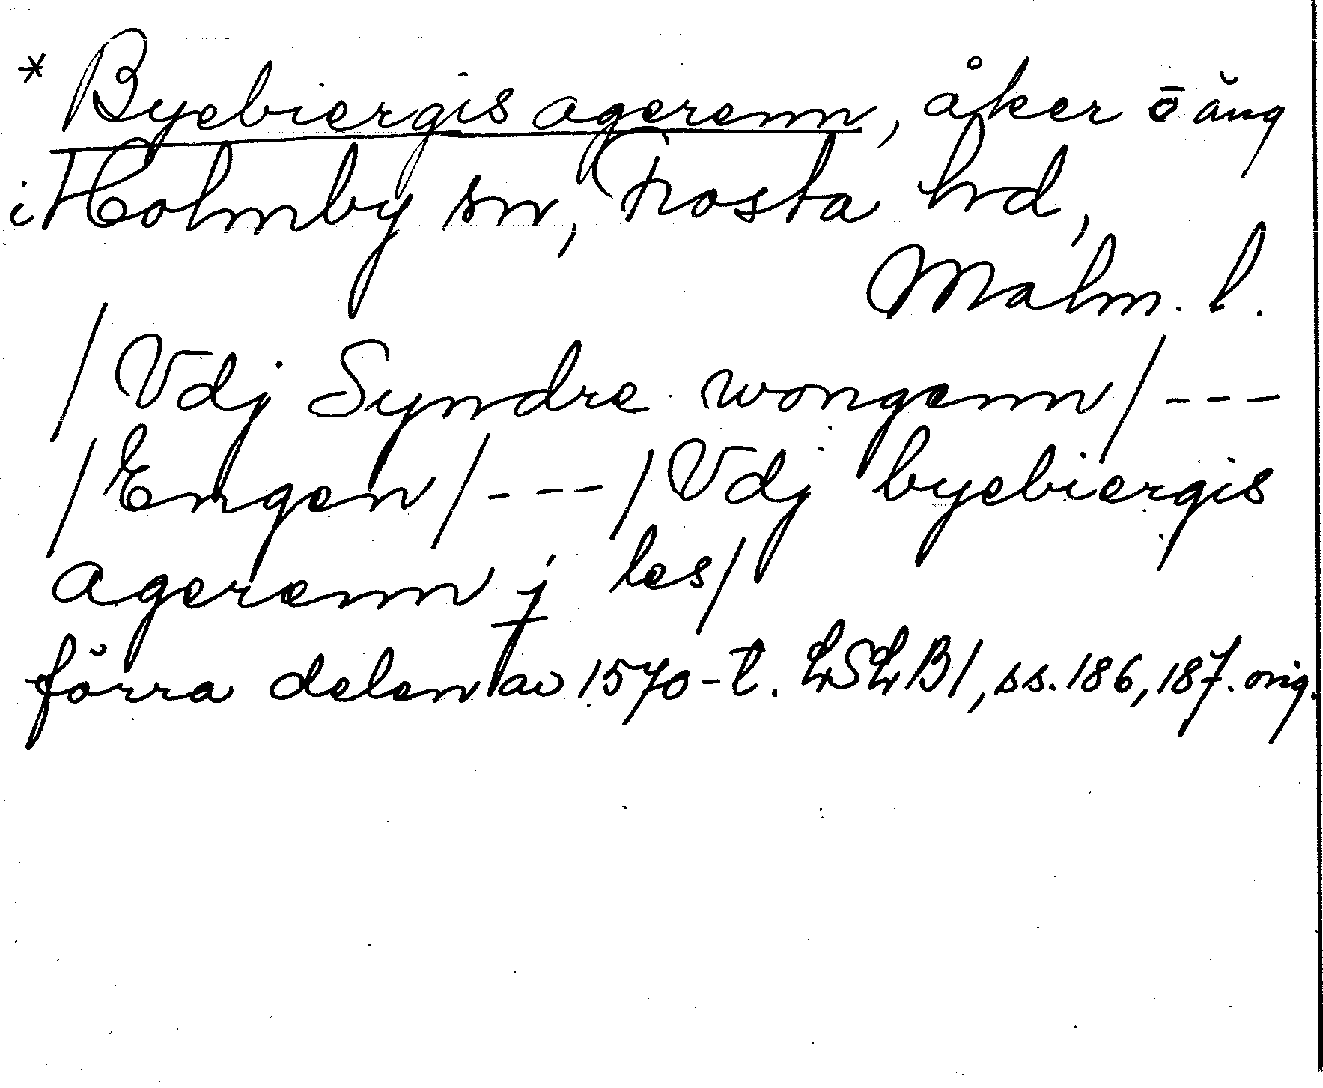 * Byebiergis agerenn, åker ō äng
i Holmby sn, Frosta hd,
Malm. l.
/Vdj Syndre wongenn/ ---
/Engen/ --- /Vdj byebiergis
agerenn j les/
förra delen av 1570-t. LSLB1, ss. 186, 187. orig.